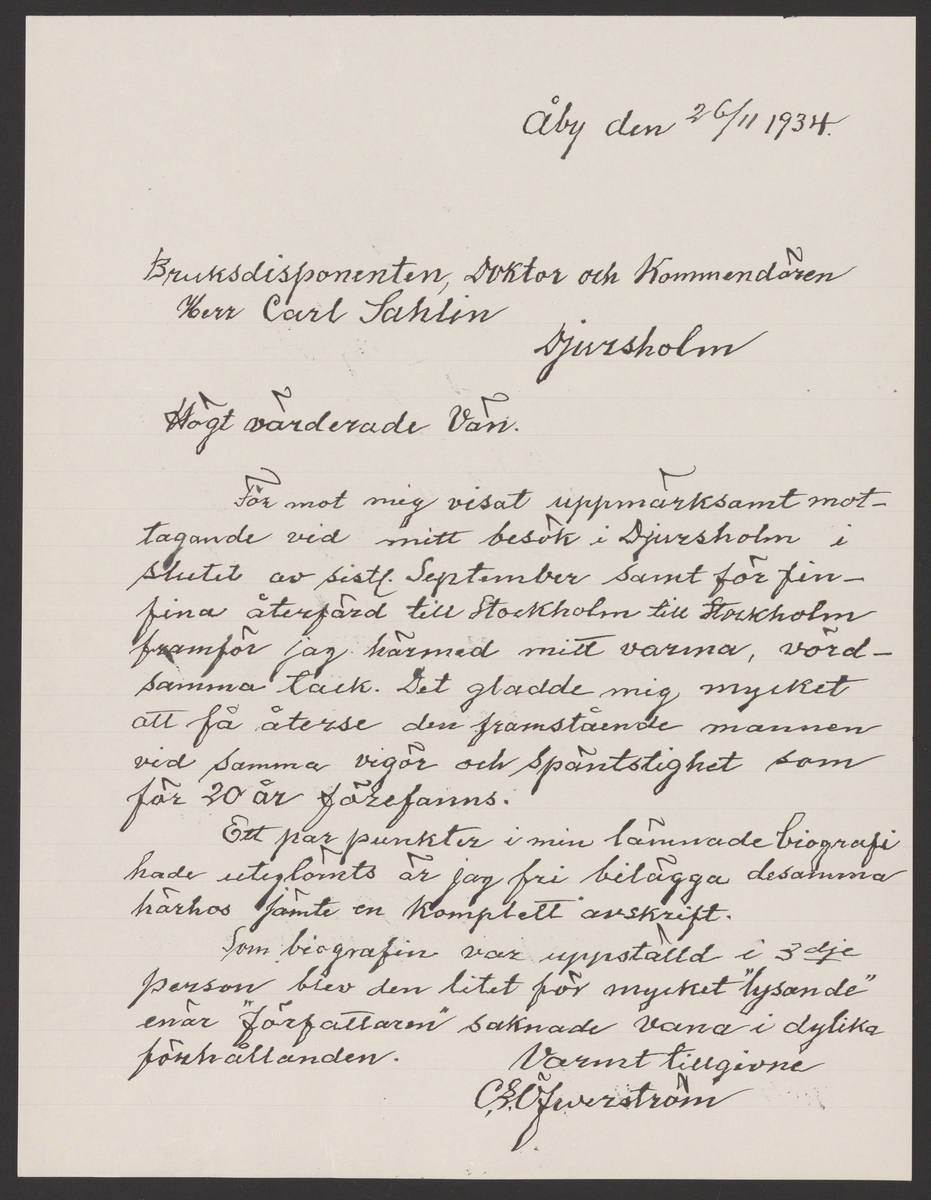 Åby den 26/11 1934.
Bruksdisponenten, Doktor och Kommendören
Herr Carl Sahlin
Djursholm
Högt värderade Vän.
För mot mig visat uppmärksamt mot-
tagande vid mitt besök i Djursholm i
slutet av sistl. September samt för fin-
fina återfärd till Stockholm till Stockholm
framför jag härmed mitt varma, vörd-
samma tack. Det gladde mig mycket
att få återse den framstående mannen
vid samma vigör och späntstighet som
för 20 år förefanns.
Ett par punkter i min lämnade biografi
hade uteglömts är jag fri bilägga desamma
härhos jämte en komplett avskrift.
Som biografin var uppställd i 3dje
person blev den litet för mycket "lysande"
enär "författaren" saknade vana i dylika
förhållanden.
Varmt tillgivne
C.E. Öfwerström